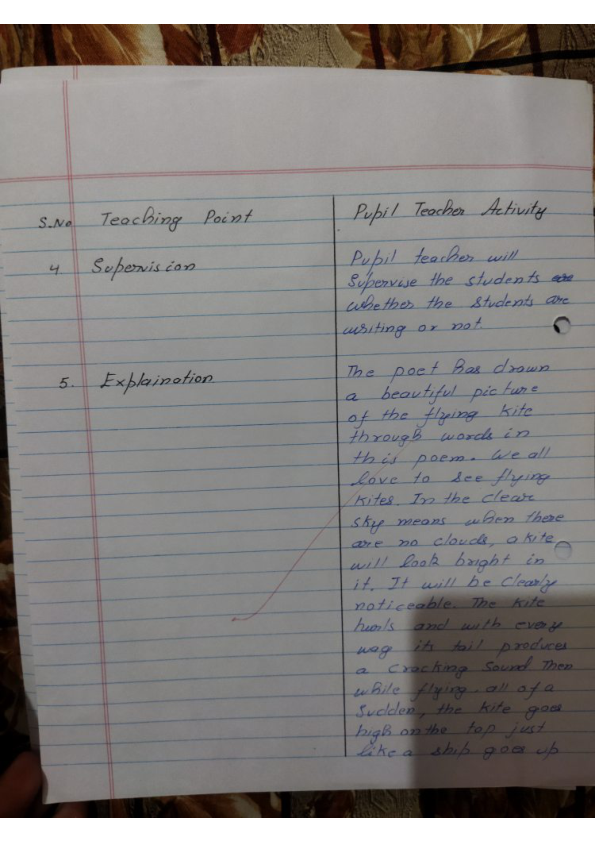 S.No Teaching Point Pupil Teacher Activity
4 Supervision Pupil teacher will
Supervise the students
whether the students are
writing or not.
5. Explaination The poet has drawn
a beautiful picture
of the flying kite
through words in
this poem. We all
love to see flying
kites. In the clear
sky means when there
are no clouds, a kite
will look bright in
it. It will be clearly
noticeable. The kite
and with every
wag its tail produces
a cracking Sound. Then
while flying all of a
Sudden, the kite goes
high on the top just
like a ship goes up